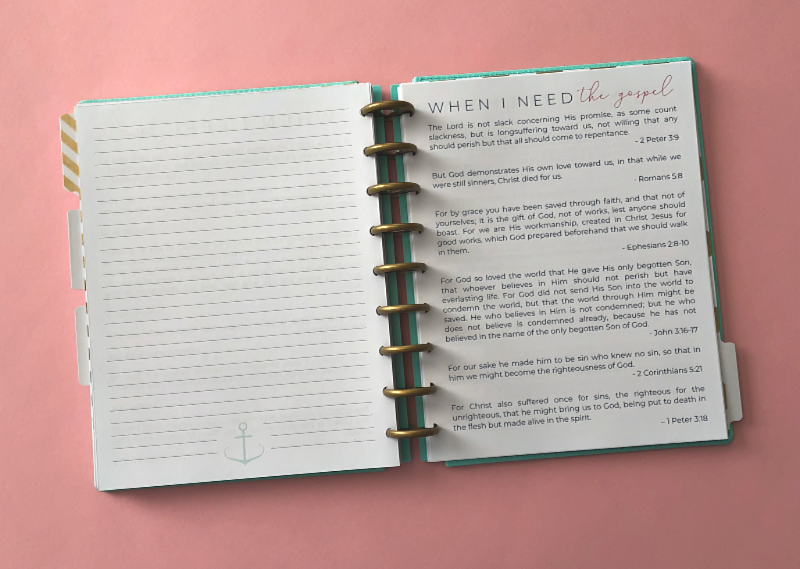 WHEN I NEED the gospel
The Lord is not slack concerning His promise, as some count
slackness, but is longsuffering toward us, not willing that any
should perish but that all should come to repentance.
- 2 Peter 3:9
But God demonstrates His own love toward us, in that while we
were still sinners, Christ died for us.
- Romans 5:8
For by grace you have been saved through faith, and that not of
yourselves; it is the gift of God, not of works, lest anyone should
boast. For we are His workmanship, created in Christ Jesus for
good works, which God prepared beforehand that we should walk
in them.
- Ephesians 2:8-10
For God so loved the world that He gave His only begotten Son,
that whoever believes in Him should not perish but have
everlasting life. For God did not send His Son into the world to
condemn the world, but that the world through Him might be
saved. He who believes in Him is not condemned; but he who
does not believe is condemned already, because he has not
believed in the name of the only begotten Son of God.
- John 3:16-17
For our sake he made him to be sin who knew no sin, so that in
him we might become the righteousness of God.
- 2 Corinthians 5:21
For Christ also suffered once for sins, the righteous for the
unrighteous, that he might bring us to God, being put to death in
the flesh but made alive in the spirit.
– 1 Peter 3:18